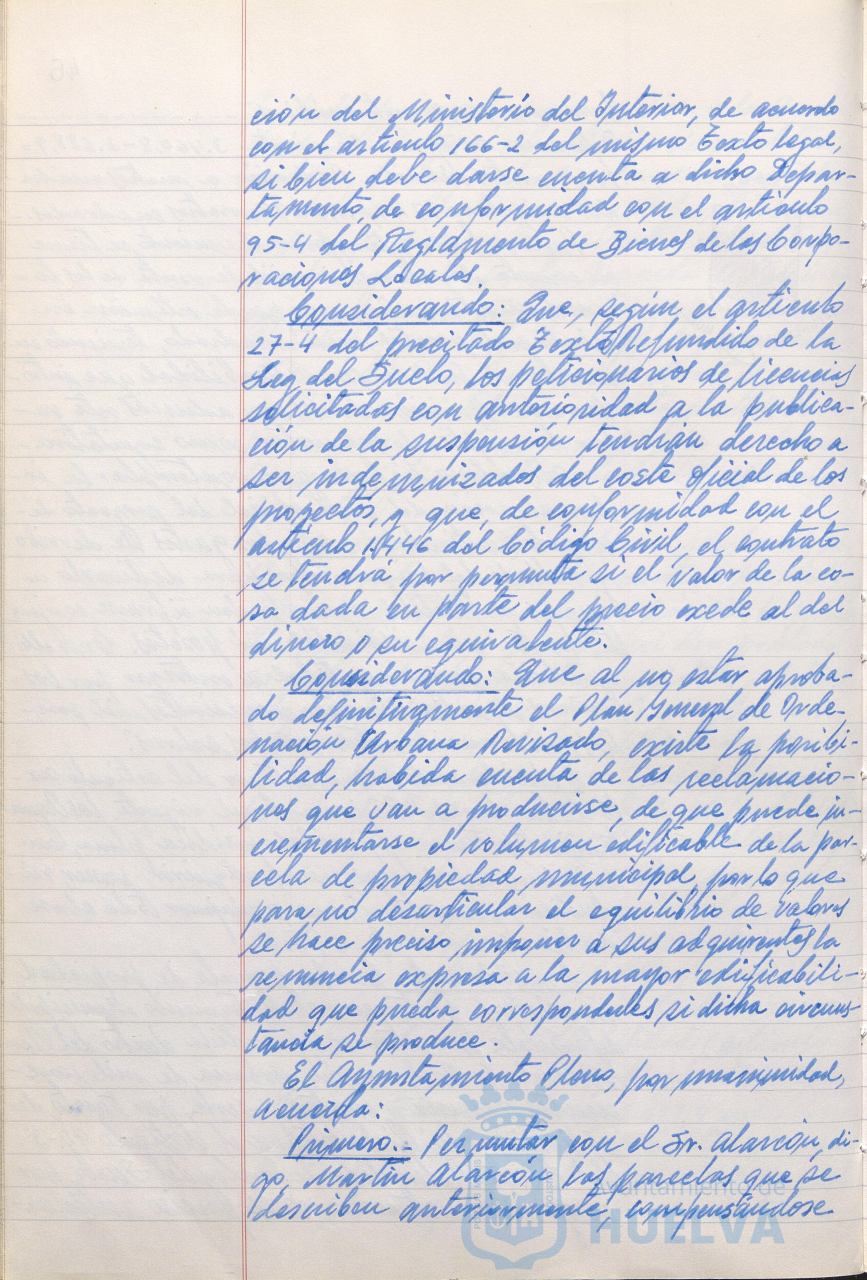 ción del Ministerio del Interior, de acuerdo
con el artículo 166-2 del mismo Texto legal,
si bien debe darse cuenta a dicho Depar-
tamento, de conformidad con el artículo
95-4 del Reglamento de Bienes de las Corpo-
raciones Locales.
Considerando: Que, según el artículo
27-4 del precitado Texto Refundido de la
Ley del Suelo, los peticionarios de licencias
solicitadas con anterioridad a la publica-
ción de la suspensión tendrán derecho a
ser indemnizados del coste oficial de los
proyectos, y que, de conformidad con el
artículo 1.446 del Código Civil, el contrato
se tendrá por permuta si el valor de la co-
sa dada en parte del precio exede al del
dinero o su equivalente.
Considerando: Que al no estar aproba-
do definitivamente el Plan General de Orde-
nación Urbana Revisado, existe la posibi-
lidad, habida cuenta de las reclamacio-
nes que van a producirse, de que puede in-
crementarse el volumen edificable de la par-
cela de propiedad municipal, por lo que
para no desarticular el equilibrio de valores
se hace preciso imponer a sus adquirentes la
renuncia expresa a la mayor edificabili-
dad que pueda corresponderles si dicha circuns-
tancia se produce.
El Ayuntamiento Pleno, por unanimidad,
acuerda:
Primero.- Permutar con el Sr. Alarcón, di-
go, Martín Alarcón las parcelas que se
describen anteriormente, compensándose
Ayuntamiento de
HUELVA